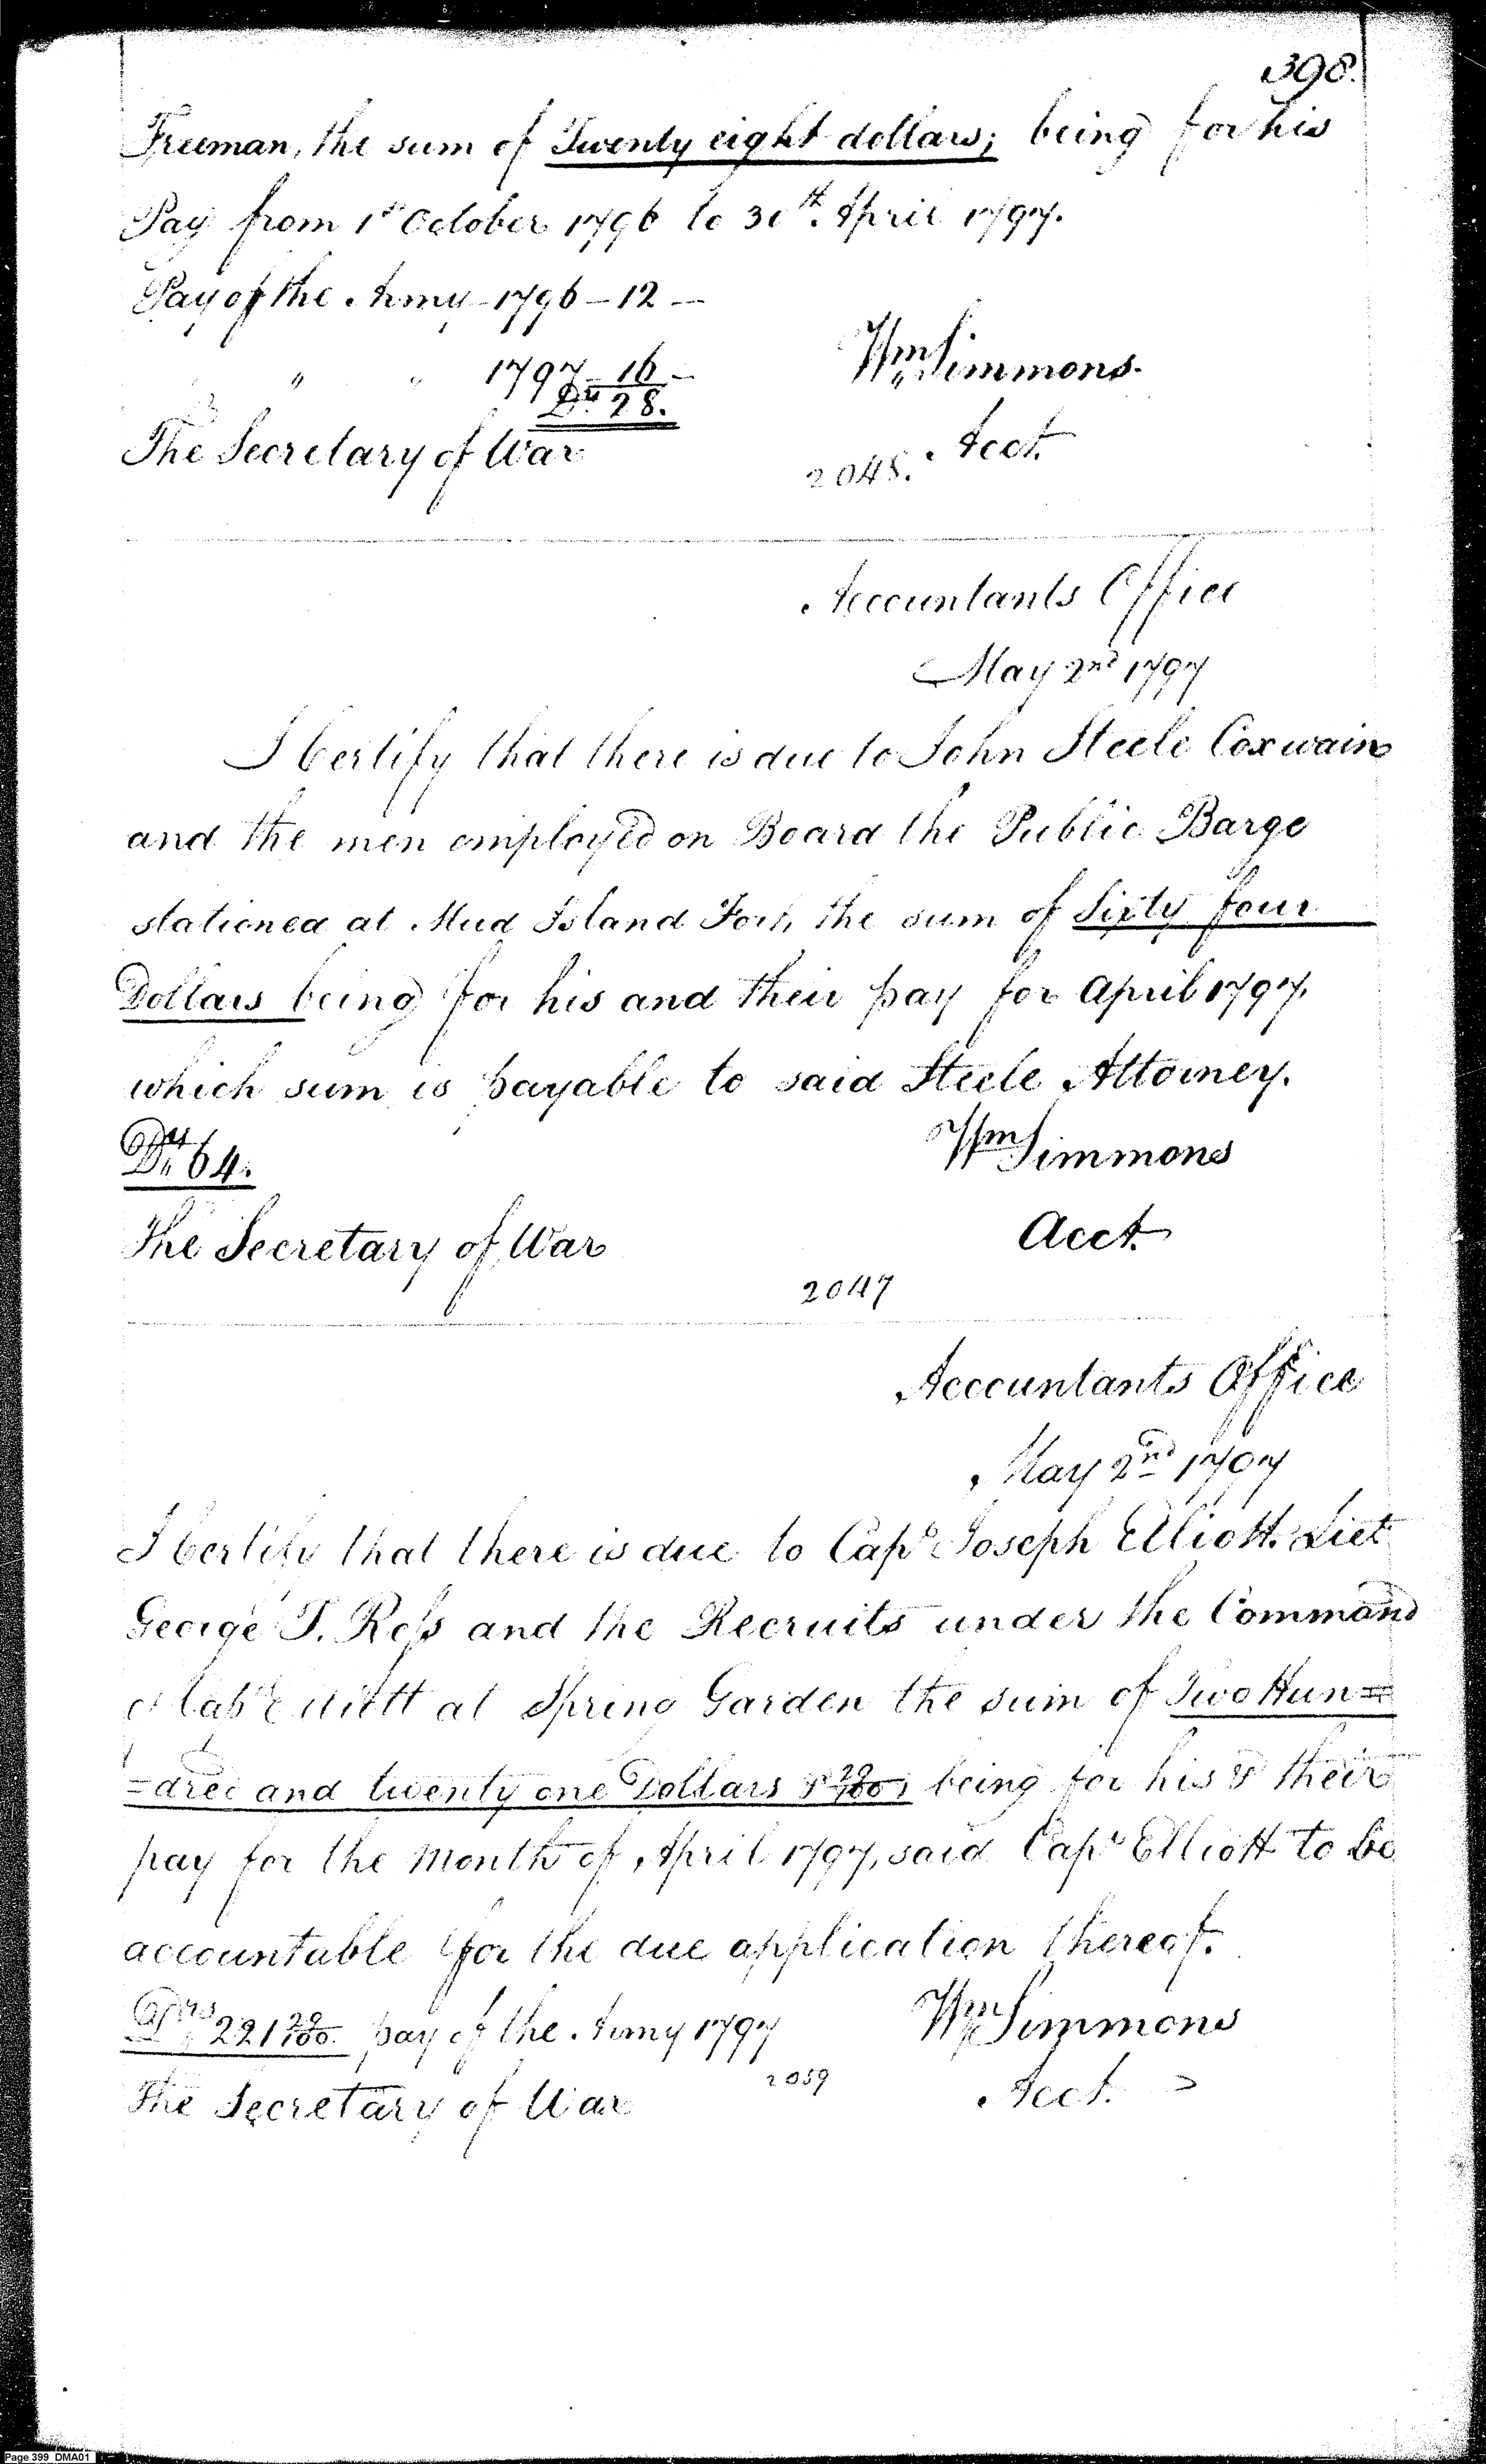 398.
Freeman, the sum of Twenty eight dollars; being for his
Pay from 1st October 1796 to 30th. April 1797.
Pay of the Army - 1796 - 12 -
" " 1797 - 16 -
Drs 28.
Wm Simmons.
The Secretary of War
Acct.
2048.
Accountants Office
May 2nd 1797
I Certify that there is due to John Steele Coxwain
and the men employed on Board the Public Barge
stationed at Mud Island Fort, the sum of Sixty four
Dollars being for his and their pay for April 1797.
which sum is payable to said Steele Attorney.
Drs 64.
Wm Simmons
The Secretary of War
Acct.
2047
Accountants Office
May 2nd 1797
I Certify that there is due to Capt Joseph Elliott. Liet
George T. Ross and the Recruits under the Command
of Capt Elliott at Spring Garden the sum of Two Hun=
=dred and twenty one Dollars & 29/100, being for his & their
pay for the Month of April 1797, said Capt Elliott to be
accountable for the due application thereof.
Drs 221 29/100. pay of the Army 1797
Wm Simmons
2059
The Secretary of War
Acct.
Page 399 DMA01